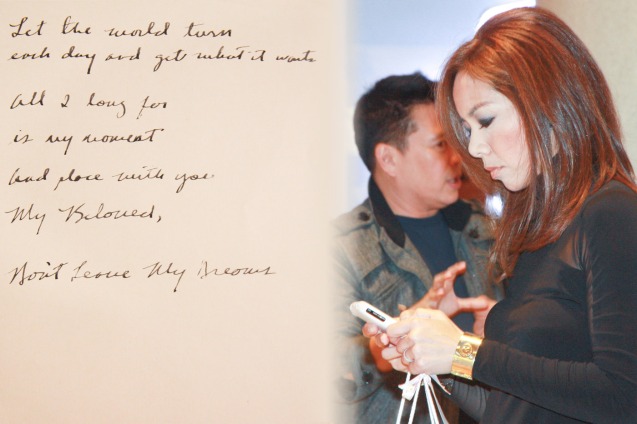 Let the world turn
each day and gets what it wants
All I long for
is my moment
and place with you
My Beloved,
Don't Leave My Dreams